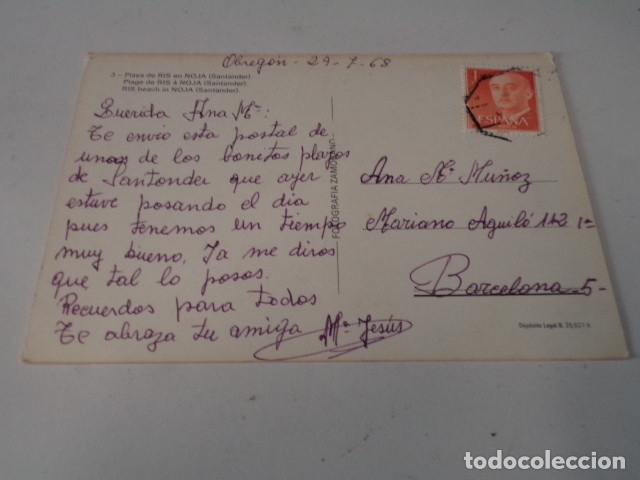 Obregón - 29-7-68
3 - Playa de RIS en NOJA (Santander)
Plage de RIS à NOJA (Santander)
RIS beach in NOJA (Santander)
Querida Ana Mª:
Te envio esta postal de
unas de los bonitos playas
de Santander que ayer
estuve pasando el dia
pues tenemos un tiempo
muy bueno. Ya me diras
que tal lo pasas.
Recuerdos para todos
Te abraza tu amiga Mª Jesús
FOTOGRAFIA ZAMORANO
ESPAÑA
Ana Mª Muñoz
Mariano Aguiló 1ª
Barcelona - 5 -
Depósito Legal B.
todocoleccion.net